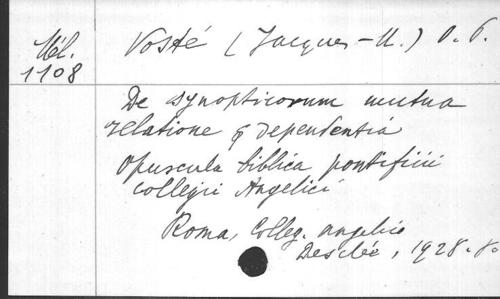 Mél. 1108
Vosté (Jacques-M.) O. P.
De synopticorum mutua
relatione & dependentiá
Opuscula biblica pontificii
collegii Angelici
Roma, Colleg. angelico
Desclée, 1928. 8o